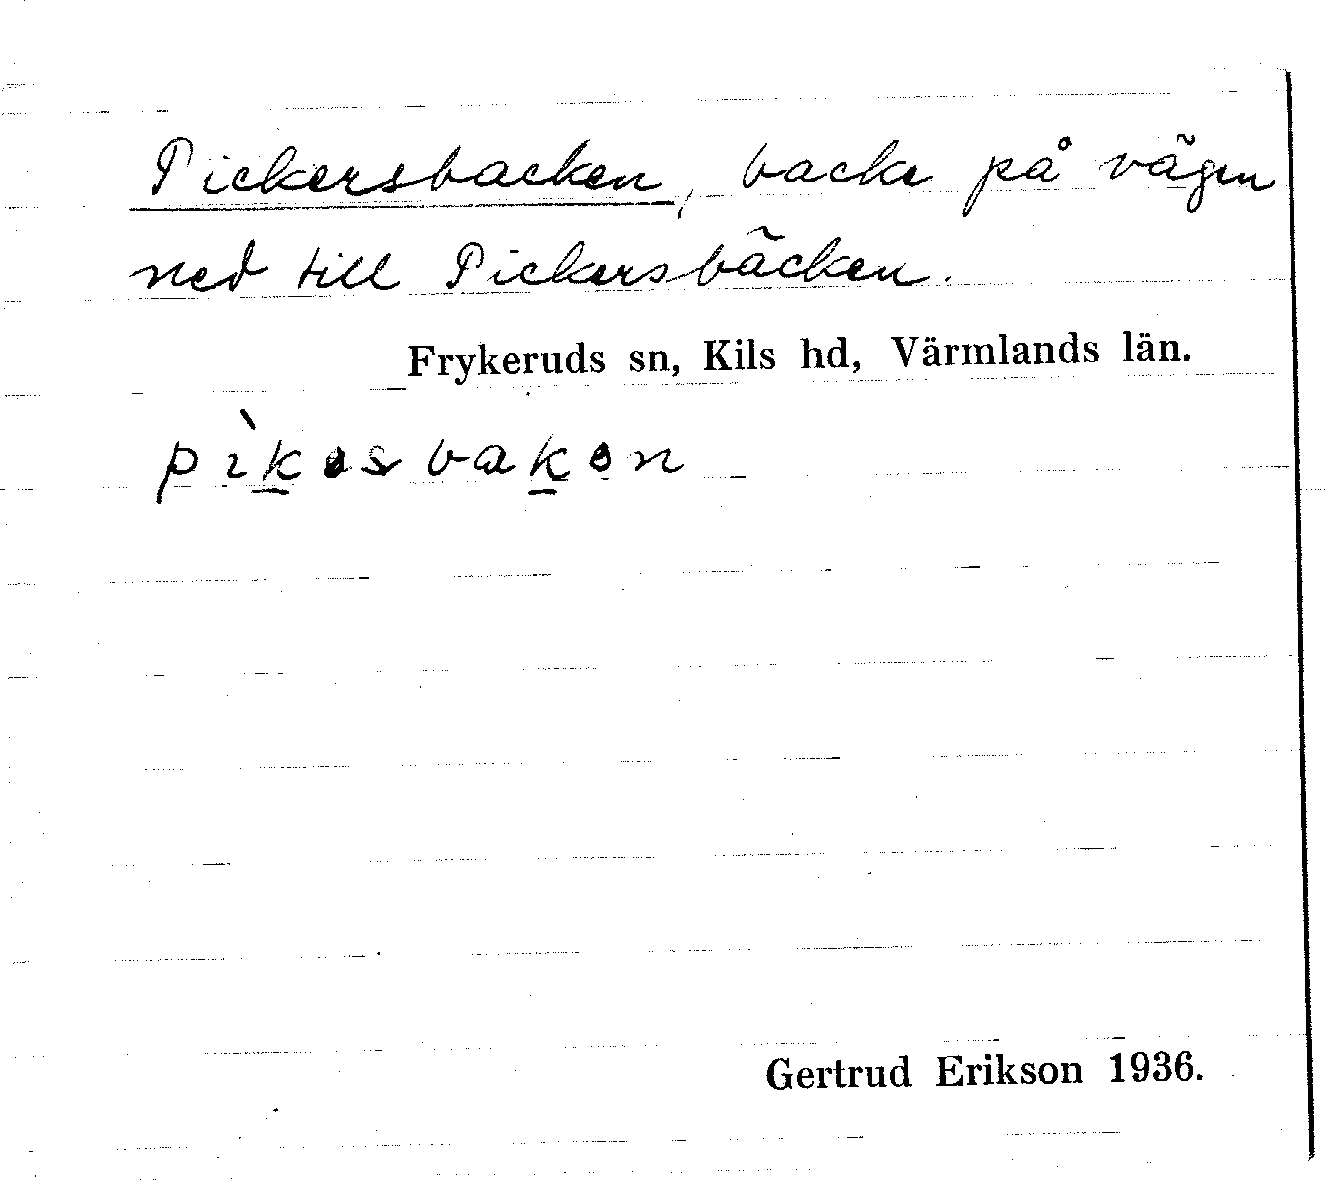 Pickersbacken, backe på vägen
ned till Pickersbäcken.
Frykeruds sn, Kils hd, Värmlands län.
pìk̠əsbak̠ən
Gertrud Erikson 1936.